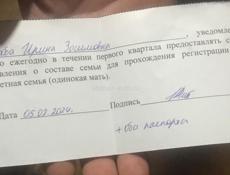 Ирина Зосимовна, уведомле
о ежегодно в течении первого квартала предоставлять с
вления о составе семьи для прохождения регистрации
етная семья (одинокая мать).
Дата 05.02.2024. Подпись
+ 600 паспорта